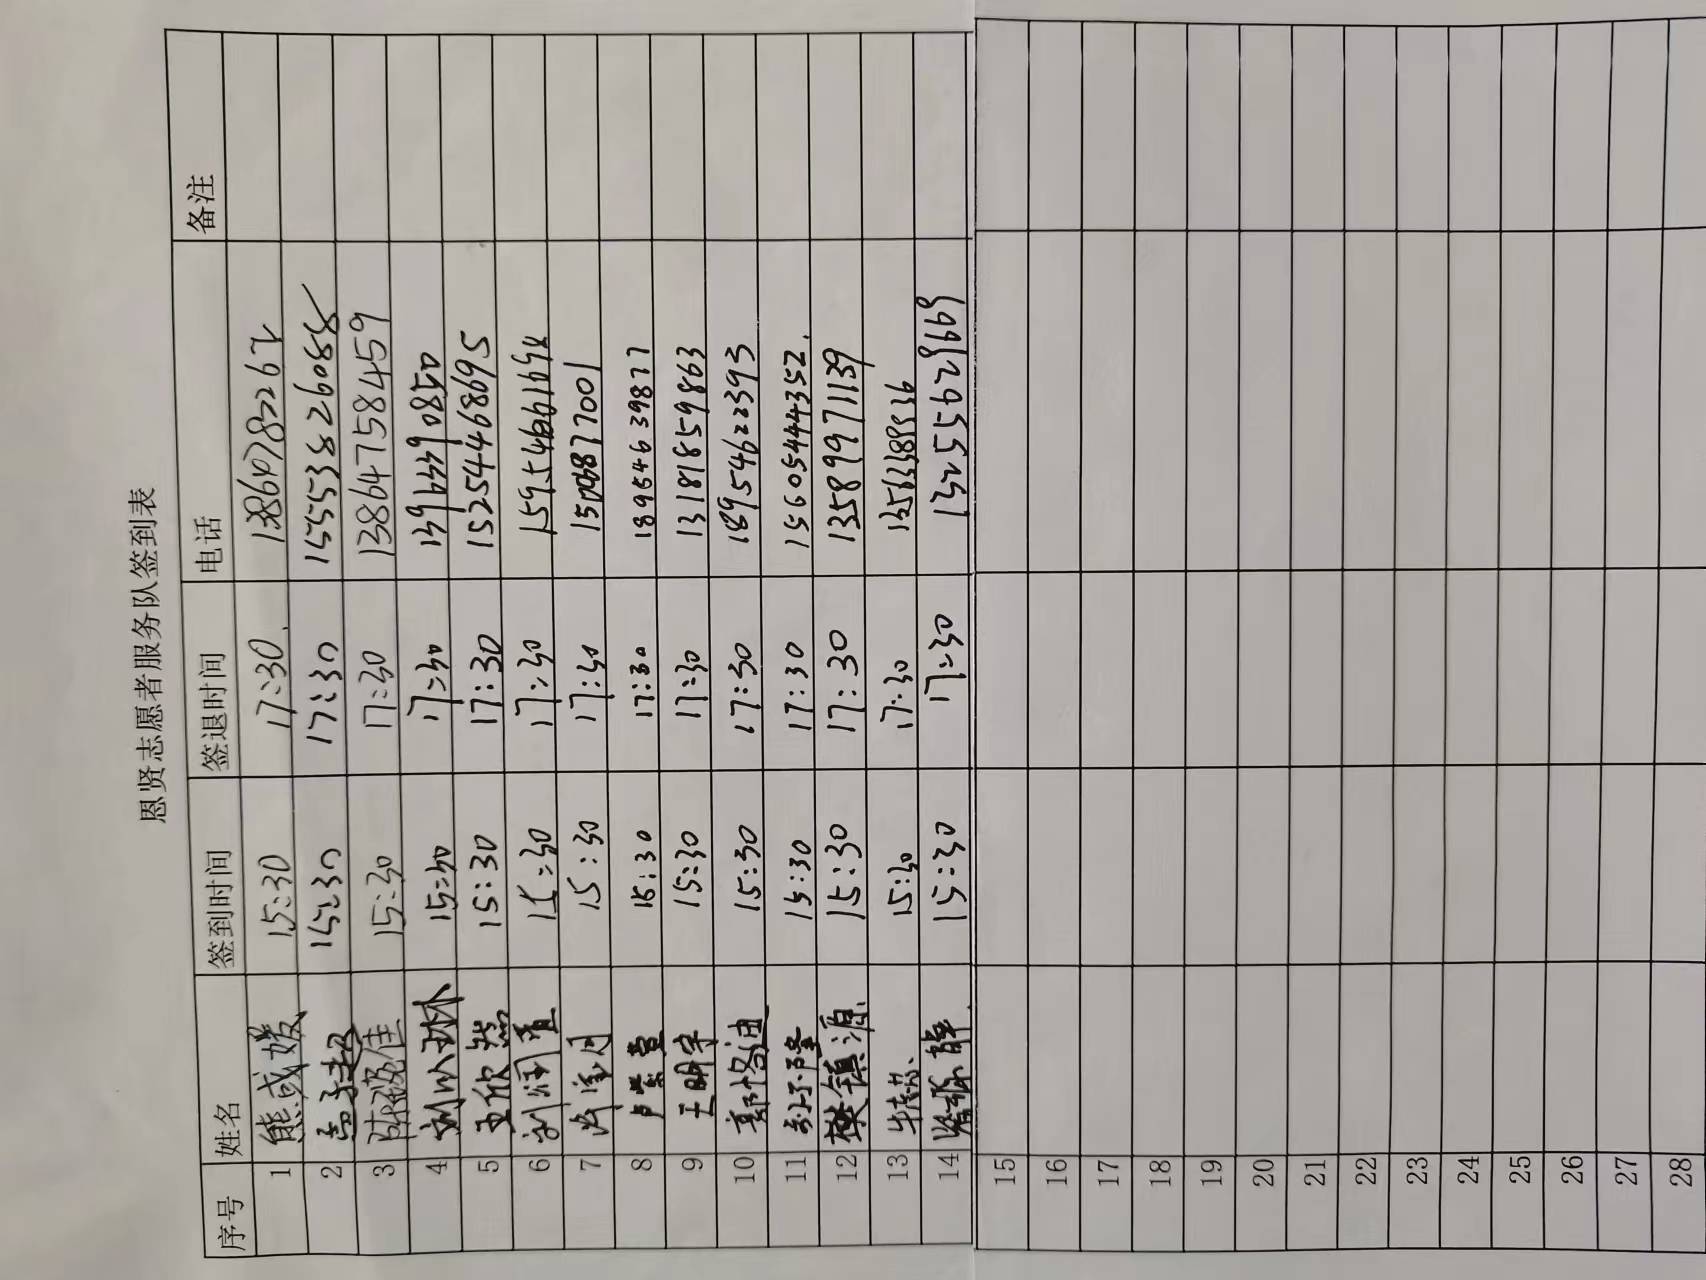 恩贤志愿者服务队签到表
序号 姓名 签到时间 签退时间 电话 备注
1 熊彧媛 15:30 17:30 13864782262
2 孟子超 15:30 17:30 15553826088
3 陈薇佳 15:30 17:30 13864758459
4 15:30 17:30
5 王欣然 15:30 17:30 15254468695
6 刘润萱 15:30 17:30
7 15:30 17:30
8 卢紫萱 15:30 17:30 18954639877
9 王明宇 15:30 17:30 13181859863
10 郭恪迪 15:30 17:30 18954622393
11 15:30 17:30 15605444352
12 樊镇源 15:30 17:30 13589971139
13 牛志 15:30 17:30
14 15:30 17:30 13255629669
15
16
17
18
19
20
21
22
23
24
25
26
27
28